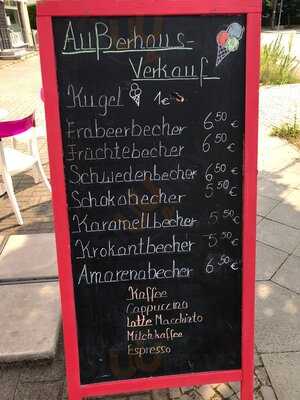 Außerhaus-
Verkauf
Kugel 1€
Erdbeerbecher 6,50€
Früchtebecher 6,50€
Schwedenbecher 6,50€
Schokobecher 5,50€
Karamellbecher 5,50€
Krokantbecher 5,50€
Amarenabecher 6,50€
Kaffee
Cappuccino
Latte Macchiato
Milchkaffee
Espresso